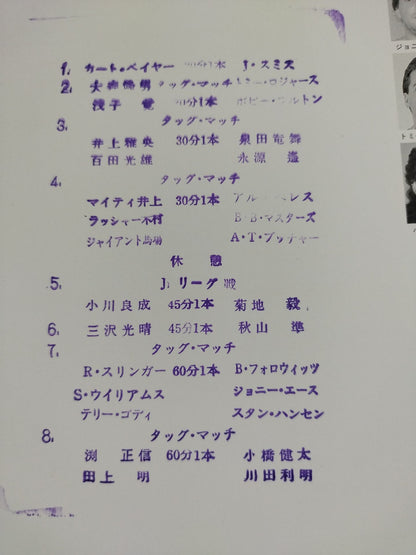 1. カート・ベイヤー 20分1本 J・スミス
2. 大森隆男 タッグ・マッチ トミー・ロジャース
浅子 覚 20分1本 ボビー・フルトン
3. タッグ・マッチ
井上雅央 30分1本 泉田竜舞
百田光雄 永源 遙
4. タッグ・マッチ
マイティ井上 30分1本 アル・ペレス
ラッシャー木村 B・B・マスターズ
ジャイアント馬場 A・T・ブッチャー
休 憩
5. Jrリーグ戦
小川良成 45分1本 菊地 毅
6. 三沢光晴 45分1本 秋山 準
7. タッグ・マッチ
R・スリンガー 60分1本 B・フォロウィッツ
S・ウイリアムス ジョニー・エース
テリー・ゴディ スタン・ハンセン
8. タッグ・マッチ
渕 正信 60分1本 小橋健太
田上 明 川田利明
ジョニ
トミ